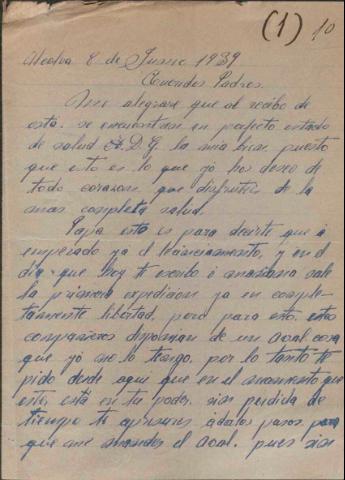 (1) 10
8 de Junio 1939
Queridos Padres.
Me alegrare que al recibo de
esta se encuentren en perfecto estado
de salud A.D.G. la mia bien puesto
que esto es lo que yo les deseo de
todo corazon que disfruteis de la
mas completa salud.
Papa esta es para decirte que a
empezado ya el licenciamiento, y en el
dia que hoy te escribo o mañana sale
la primera expedicion ya en comple-
tamente libertad, pero para esto, estos
compañeros disponian de un aval cosa
que yo no lo tengo, por lo tanto te
pido desde aqui que en el momento que
esta está en tu poder, sin perdida de
tiempo te apresures a dar los pasos para
que me mandes el aval, pues sin